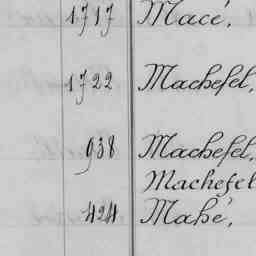 1717 Macé,
1722 Machefel,
938 Machefel,
Machefel
424 Mahé,